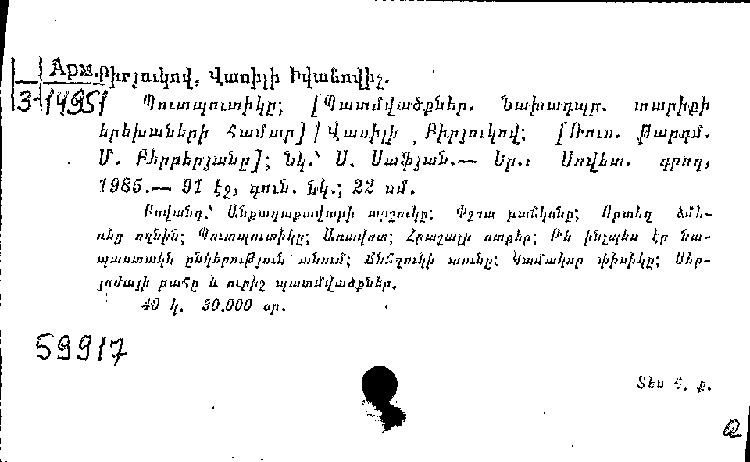 Арм.
Բիրյուկով, Վասիլի Իվանովիչ.
3-14951
Պուտպուտիկը; [Պատմվածքներ. Նախադպր. տարիքի
երեխաների համար] / Վասիլի Բիրյուկով; [Ռուս. Թարգմ.
Մ. Բերբերյանը]; Նկ.՝ Ս. Սաֆյան.— Եր.: Սովետ. գրող,
1985.— 91 էջ, գուն. նկ.; 22 սմ.
Բովանդ.՝ Անտառաքավարի արջուկը; Փշոտ բանկոնը; Որտեղ ձմե-
ռեց ոզնին; Պուտպուտիկը; Առավոտ; Հրաշալի օտքեր; Թե ինչպես էր նա-
պաստակն ընկերություն անում; Ճնճղուկի տունը; Կամակոր փիսիկը; Սեր-
յոժայի բահը և ուրիշ պատմվածքներ.
40 կ. 30.000 օր.
59917
Տես Հ. ք.